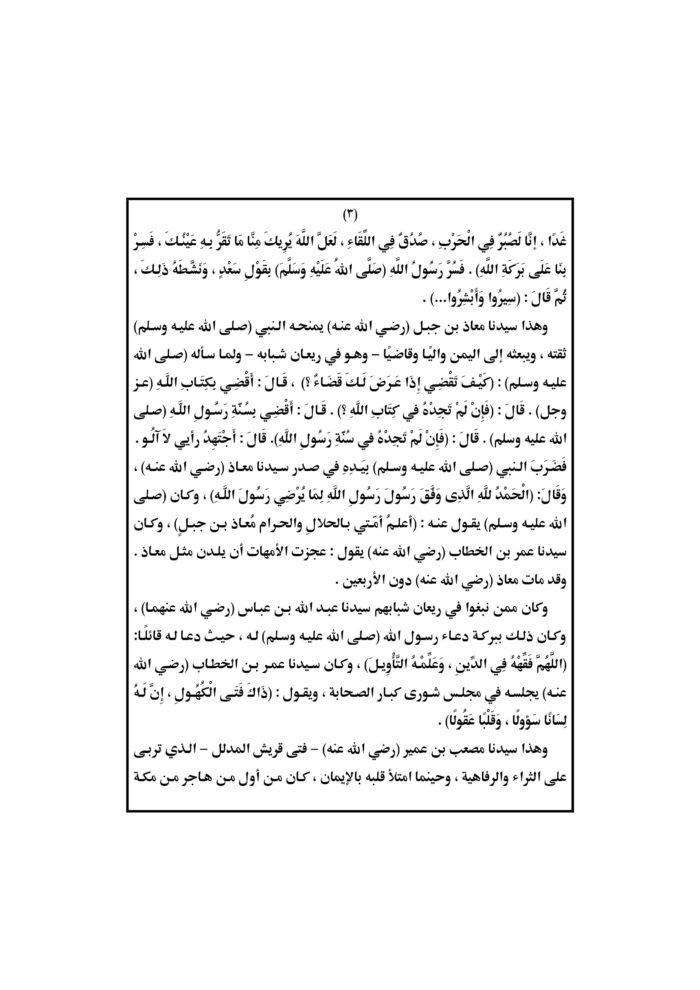 (٣)
غَدًا ، إِنَّا لَصُبُرٌ فِي الْحَرْبِ ، صُدُقٌ فِي اللِّقَاءِ ، لَعَلَّ اللَّهَ يُرِيكَ مِنَّا مَا تَقَرُّ بِهِ عَيْنُكَ ، فَسِرْ
بِنَا عَلَى بَرَكَةِ اللَّهِ) . فَسُرَّ رَسُولُ اللَّهِ (صَلَّى اللهُ عَلَيْهِ وَسَلَّمَ) بِقَوْلِ سَعْدٍ ، وَنَشَّطَهُ ذَلِكَ ،
ثُمَّ قَالَ : (سِيرُوا وَأَبْشِرُوا...) .
وهذا سيدنا معاذ بن جبل (رضي الله عنه) يمنحه النبي (صلى الله عليه وسلم)
ثقته ، ويبعثه إلى اليمن واليًا وقاضيًا – وهو في ريعان شبابه – ولما سأله (صلى الله
عليه وسلم) : (كَيْفَ تَقْضِي إِذَا عَرَضَ لَكَ قَضَاءٌ ؟) ، قَالَ : أَقْضِي بِكِتَابِ اللَّهِ (عز
وجل) . قَالَ : (فَإِنْ لَمْ تَجِدْهُ فِي كِتَابِ اللَّهِ ؟) . قَالَ : أَقْضِي بِسُنَّةِ رَسُولِ اللَّهِ (صلى
الله عليه وسلم) . قَالَ : (فَإِنْ لَمْ تَجِدْهُ في سُنَّةِ رَسُولِ اللَّهِ). قَالَ : أَجْتَهِدُ رأيي لاَ آلُو .
فَضَرَبَ النبي (صلى الله عليه وسلم) بِيَدِهِ في صدر سيدنا معاذ (رضي الله عنه) ،
وَقَالَ: (الْحَمْدُ للَّهِ الَّذِى وَفَّقَ رَسُولَ رَسُولِ اللَّهِ لِمَا يُرْضِي رَسُولَ اللَّهِ) ، وكان (صلى
الله عليه وسلم) يقول عنه : (أعلمُ أمّتي بالحلالِ والحرام مُعاذ بن جبلٍ) ، وكان
سيدنا عمر بن الخطاب (رضي الله عنه) يقول : عجزت الأمهات أن يلدن مثل معاذ .
وقد مات معاذ (رضي الله عنه) دون الأربعين .
وكان ممن نبغوا في ريعان شبابهم سيدنا عبد الله بن عباس (رضي الله عنهما) ،
وكان ذلك ببركة دعاء رسول الله (صلى الله عليه وسلم) له ، حيث دعا له قائلًا:
(اللَّهُمَّ فَقِّهْهُ فِي الدِّينِ ، وَعَلِّمْهُ التَّأْوِيلَ) ، وكان سيدنا عمر بن الخطاب (رضي الله
عنه) يجلسه في مجلس شورى كبار الصحابة ، ويقول : (ذَاكَ فَتَى الْكُهُولِ ، إِنَّ لَهُ
لِسَانًا سَؤُولًا ، وَقَلْبًا عَقُولًا) .
وهذا سيدنا مصعب بن عمير (رضي الله عنه) – فتى قريش المدلل – الذي تربى
على الثراء والرفاهية ، وحينما امتلأ قلبه بالإيمان ، كان من أول من هاجر من مكة